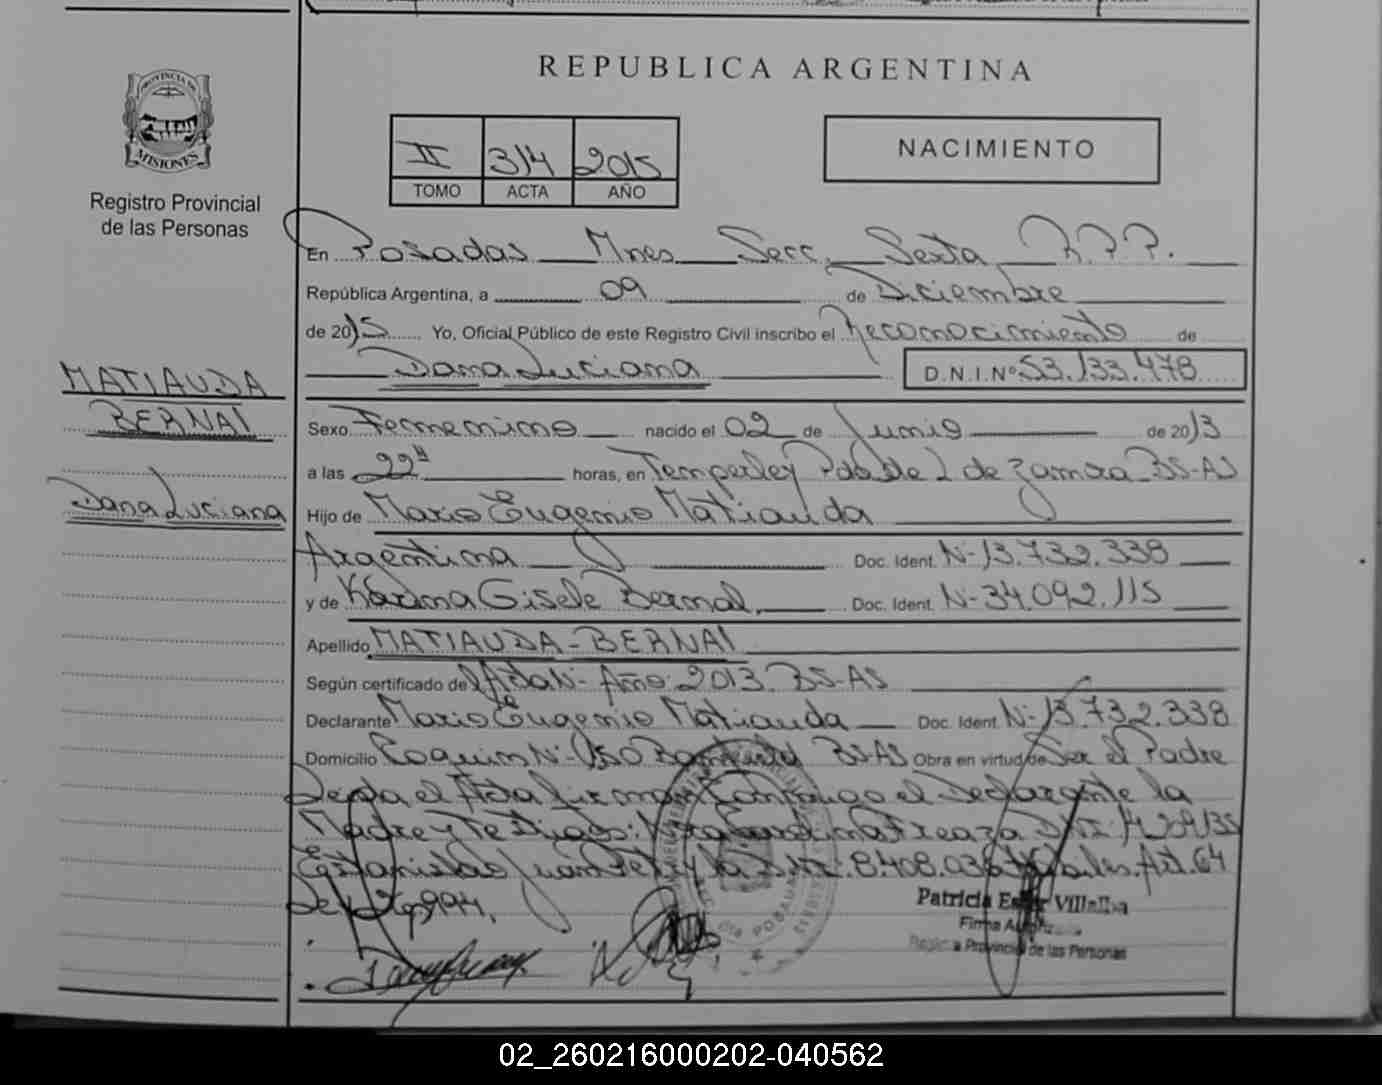 REPUBLICA ARGENTINA
PROVINCIA DE
MISIONES
Registro Provincial
de las Personas
II 314 2015
TOMO ACTA AÑO
NACIMIENTO
En Posadas Mnes. Secc. Sexta R.P.P.
República Argentina, a 09 de Diciembre
de 2015 Yo, Oficial Público de este Registro Civil inscribo el Reconocimiento de
Dana Luciana D.N.I.Nº 53.133.478
MATIAUDA
BERNAL
Dana Luciana
Sexo Femenino nacido el 02 de Junio de 2013
a las 22H horas, en Temperley Pdo de L de Zamora BS-AS
Hijo de Mario Eugenio Matiauda
Argentina Doc. Ident. Nº 13.732.338
y de Karina Gisele Bernal, Doc. Ident. Nº 34.092.115
Apellido MATIAUDA-BERNAL
Según certificado de Año 2013. BS-AS
Declarante Mario Eugenio Matiauda Doc. Ident. Nº 13.732.338
Domicilio Nº BS-AS Obra en virtud de Ser el Padre
el Acta Firman Conmigo el Declarante la
Madre y Testigos: DNI: 14.209.135
Estanislao Juan y la DNI. 8.408.036 Art. 64
Patricia Ester Villalba
Firma
Registro Provincial de las Personas
02_260216000202-040562